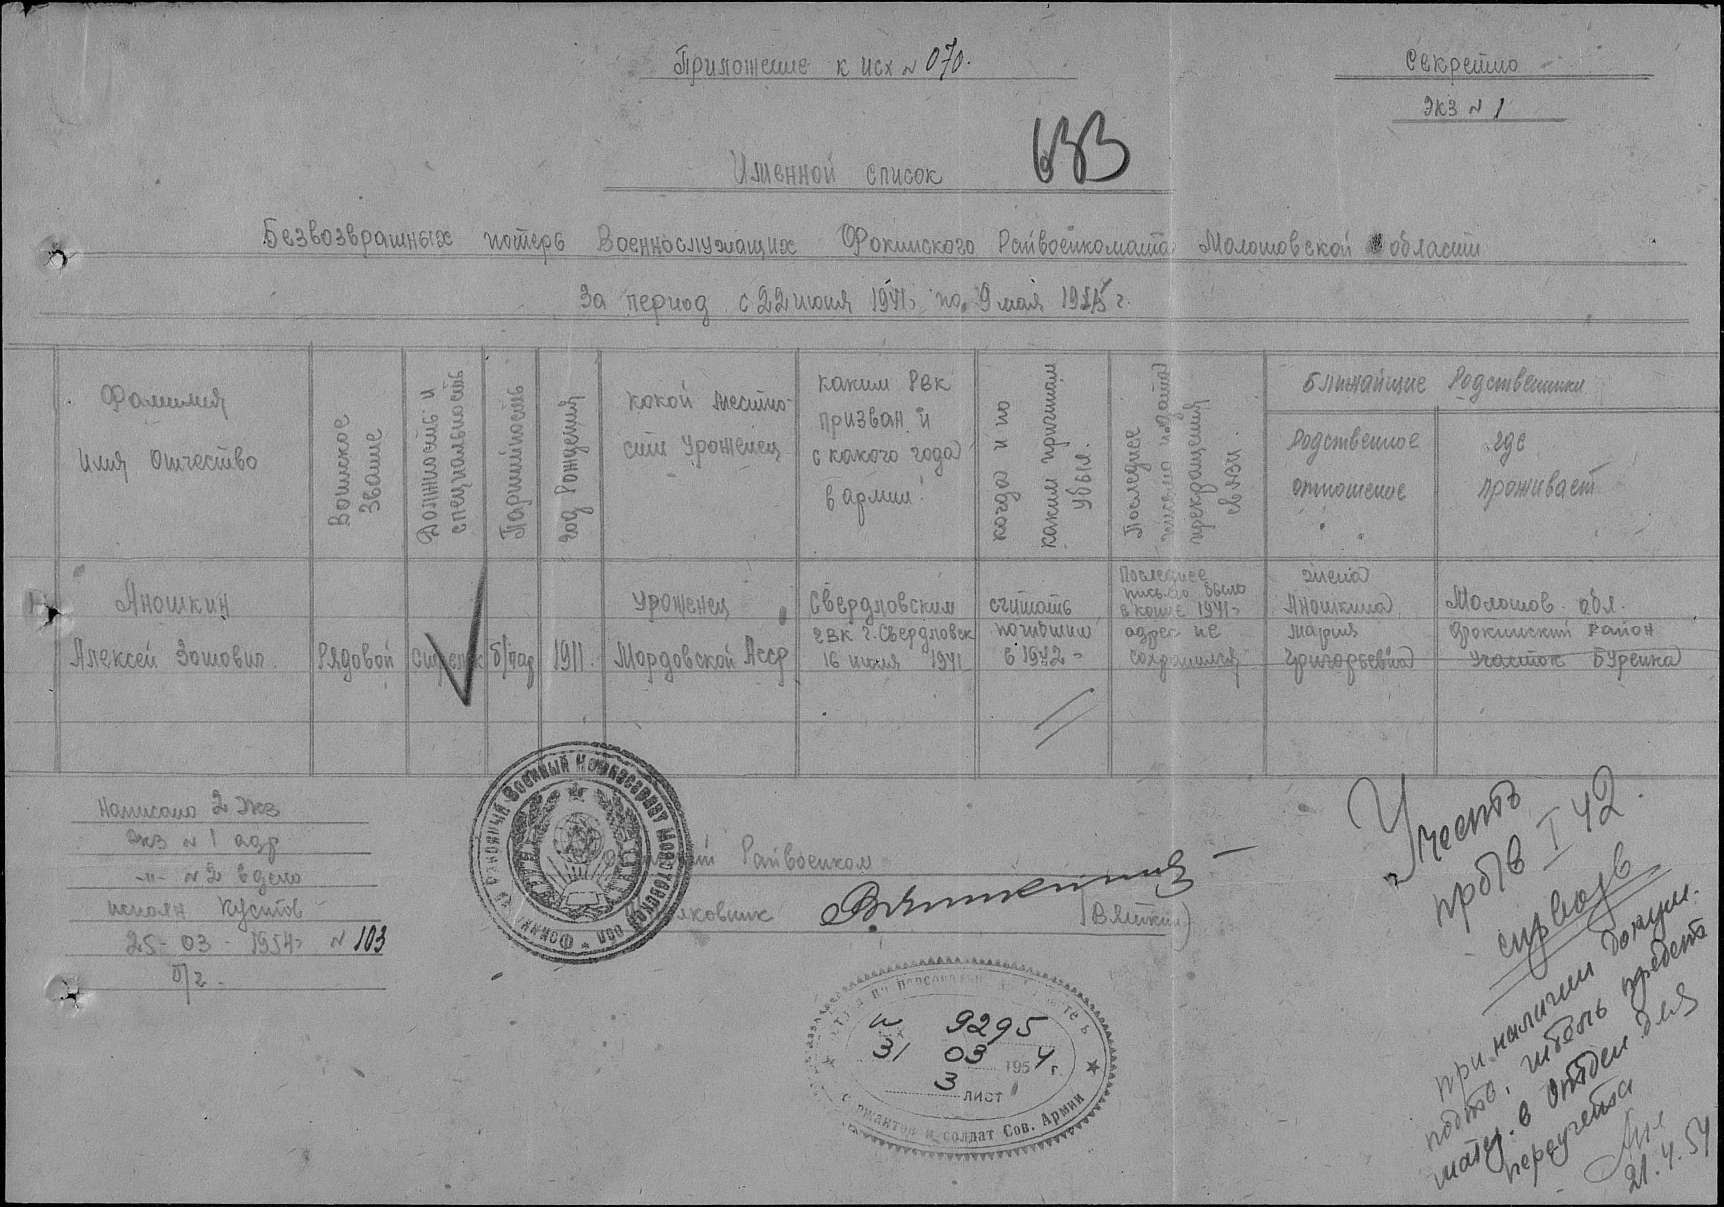 Приложение к исх № 070.
Секретно
экз № 1
Именной список
633
Безвозвратных потерь Военнослужащих Фокинского Райвоенкомата Молотовской области
За период с 22 июня 1941г по 9 мая 1945 г.
Фамилия
имя отчество
Воинское
Звание
Должность и
специальность
Партийность
год Рождения
какой местно-
сти уроженец
каким РВК
призван и
с какого года
в армии
когда и по
каким причинам
убыл.
Последнее
письмо и дата
прекращения
связи.
Ближайшие Родственники
Родственное
отношение
где
проживает
1
Аношкин
Алексей Зотович
Рядовой
Стрелок
б/пар
1911.
уроженец
Мордовской Асср
Свердловским
гвк г. Свердловск
16 июля 1941
считать
погибшим
в 1942г
Последнее
письмо было
в конце 1941г
адрес не
сохранился
жена
Аношкина
Мария
Григорьевна
Молотов. обл.
Фокинский район
участок Буренка
Написано 2 экз
экз № 1 адр
-"- № 2 в дело
исполн Кустов
25-03-1954г № 103
б/ч
Районный Военный Комиссариат Молотовской обл
Фокинский
Райвоенком
Полковник
(Вяткин)
вх
9295
31 03 1954 г.
3 лист
сержантов и солдат Сов. Армии
Учесть
проп/в I 42.
при наличии докум.
подтв. гибель
матер. в отдел для
переучета
21.4.54